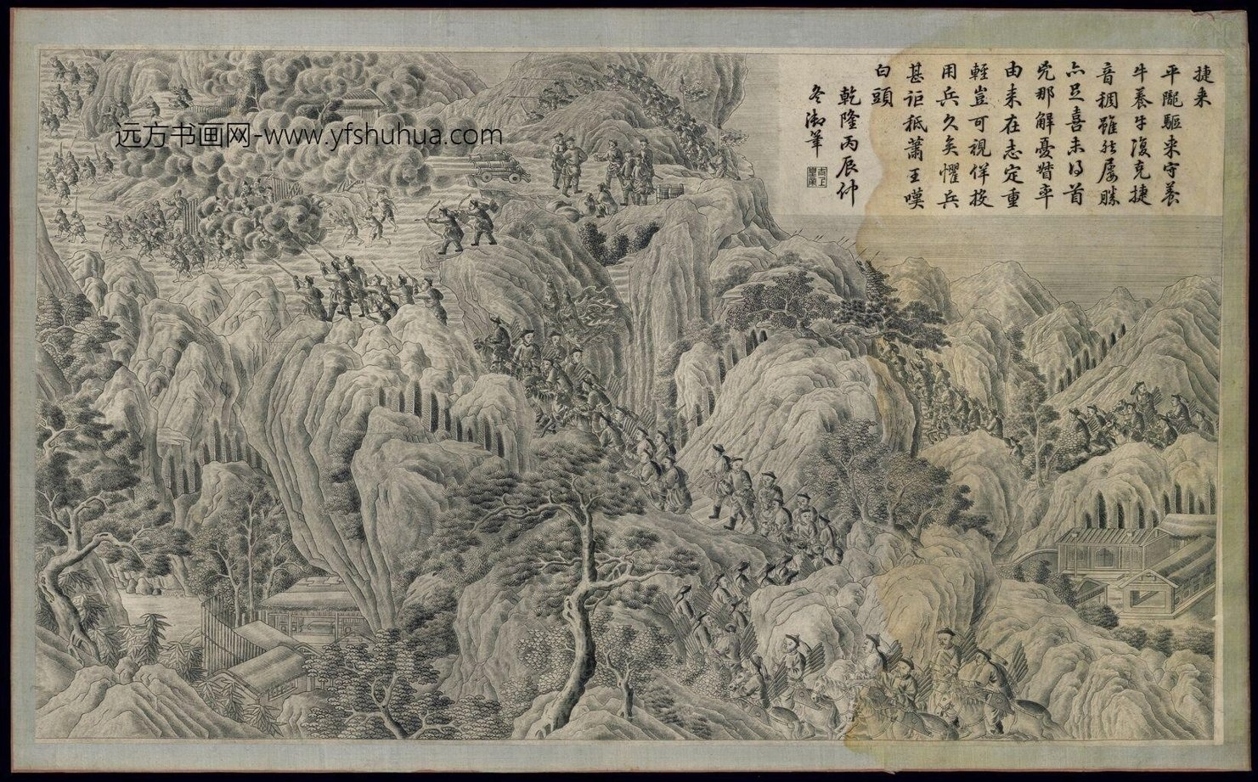 捷来
平隴驅来守養
牛養牛復克捷
音稠雖然屡勝
亦足喜未得首
那解憂
由来在志定重
輕豈可視佯投
用兵久矣懼兵
甚詎秪蕭王嘆
白頭
乾隆丙辰仲
冬御筆
远方书画网-www.yfshuhua.com